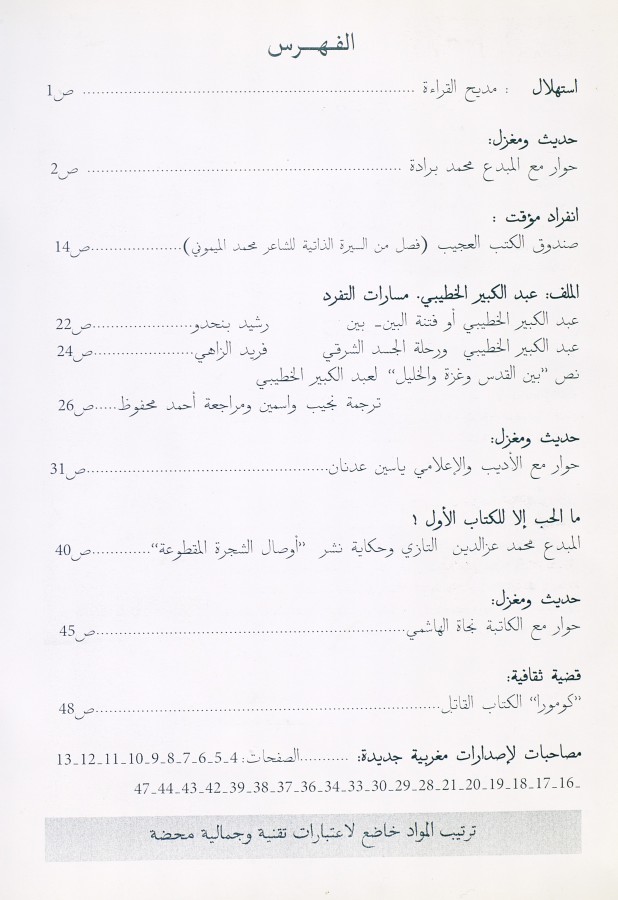 الفهرس
استهلال : مديح القراءة .......... ص1
حديث ومغزل:
حوار مع المبدع محمد برادة .......... ص2
انفراد مؤقت :
صندوق الكتب العجيب (فصل من السيرة الذاتية للشاعر محمد الميموني)..........ص14
الملف: عبد الكبير الخطيبي. مسارات التفرد
عبد الكبير الخطيبي أو فتنة البين- بين رشيد بنحدو..........ص22
عبد الكبير الخطيبي ورحلة الجسد الشرقي فريد الزاهي..........ص24
نص "بين القدس وغزة والخليل" لعبد الكبير الخطيبي
ترجمة نجيب واسمين ومراجعة أحمد محفوظ.....ص26
حديث ومغزل:
حوار مع الأديب والإعلامي ياسين عدنان..........ص31
ما الحب إلا للكتاب الأول ؟
المبدع محمد عزالدين التازي وحكاية نشر "أوصال الشجرة المقطوعة"..........ص40
حديث ومغزل:
حوار مع الكاتبة نجاة الهاشمي..........ص45
قضية ثقافية:
"كومورا" الكتاب القاتل..........ص48
مصاحبات لإصدارات مغربية جديدة: ..........الصفحات: 4-5-6-7-8-9-10-11-12-13
-16-17-18-19-20-21-28-29-30-33-34-36-37-38-39-42-43-44-47
ترتيب المواد خاضع لاعتبارات تقنية وجمالية محضة